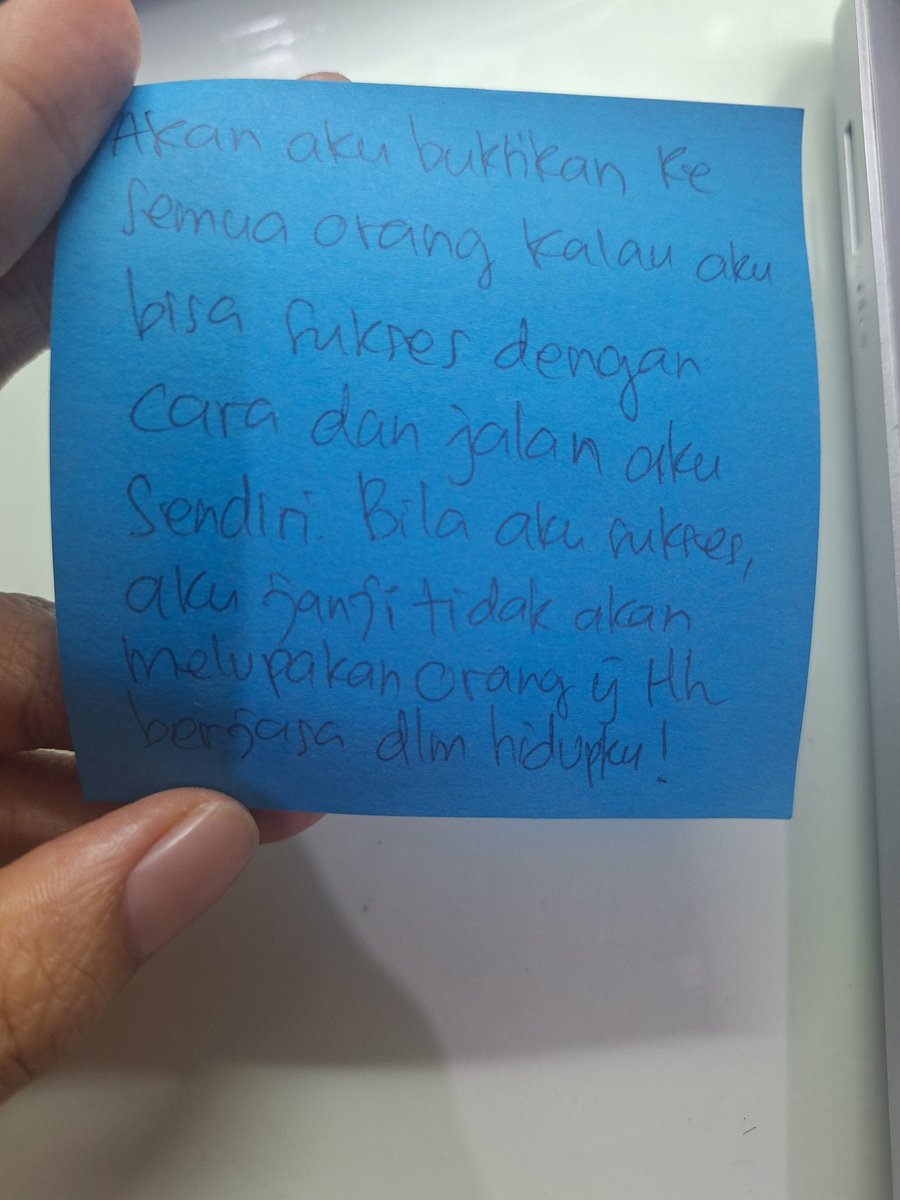 Akan aku buktikan ke
semua orang kalau aku
bisa sukses dengan
cara dan jalan aku
sendiri. Bila aku sukses,
aku janji tidak akan
melupakan orang yg tlh
berjasa dlm hidupku!